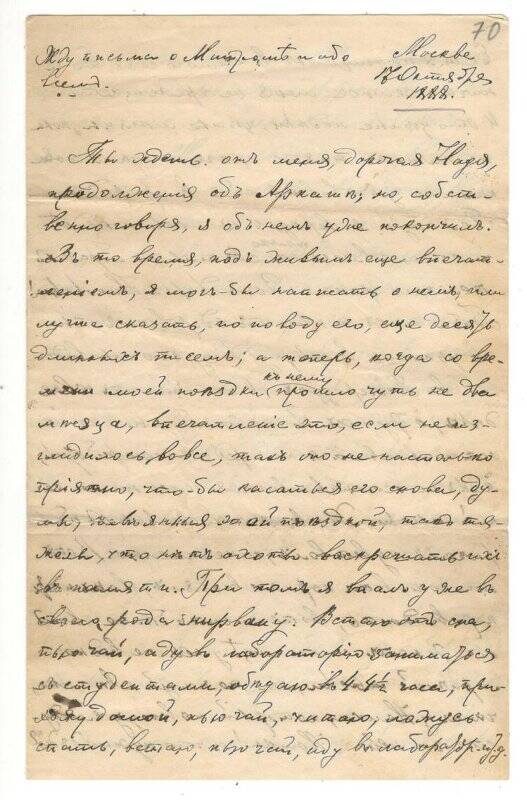 70
Жду письма о Митромѣ и обо
всемъ.
Москва
17 Октября
1888.
Ты ждешь отъ меня, дорогая Надя,
продолженія объ Аркашѣ; но, собст-
венно говоря, я объ немъ уже покончилъ.
Въ то время, подъ живымъ еще впечат-
лѣніемъ, я могъ-бы написать о немъ, или
лучше сказать, по поводу его, еще десять
длинныхъ писемъ; а теперь, когда со вре-
мени моей поѣздки къ нему прошло чуть не два
мѣсяца, впечатлѣніе это, если не из-
гладилось вовсе, такъ оно не настолько
пріятно, что-бы касаться его снова, ду-
мы, навѣянныя этой поѣздкой, такъ тя-
желы, что нѣтъ охоты воскрешать ихъ
въ памяти. При томъ я впалъ уже въ
своего рода нирвану. Встаю отъ сна,
пью чай, иду въ лабораторію заниматься
съ студентами, обѣдаю въ 4 4½ часа, при-
хожу домой, пью чай, читаю, ложусь
спать, встаю, пью чай, иду въ лаборатор. и т. д.